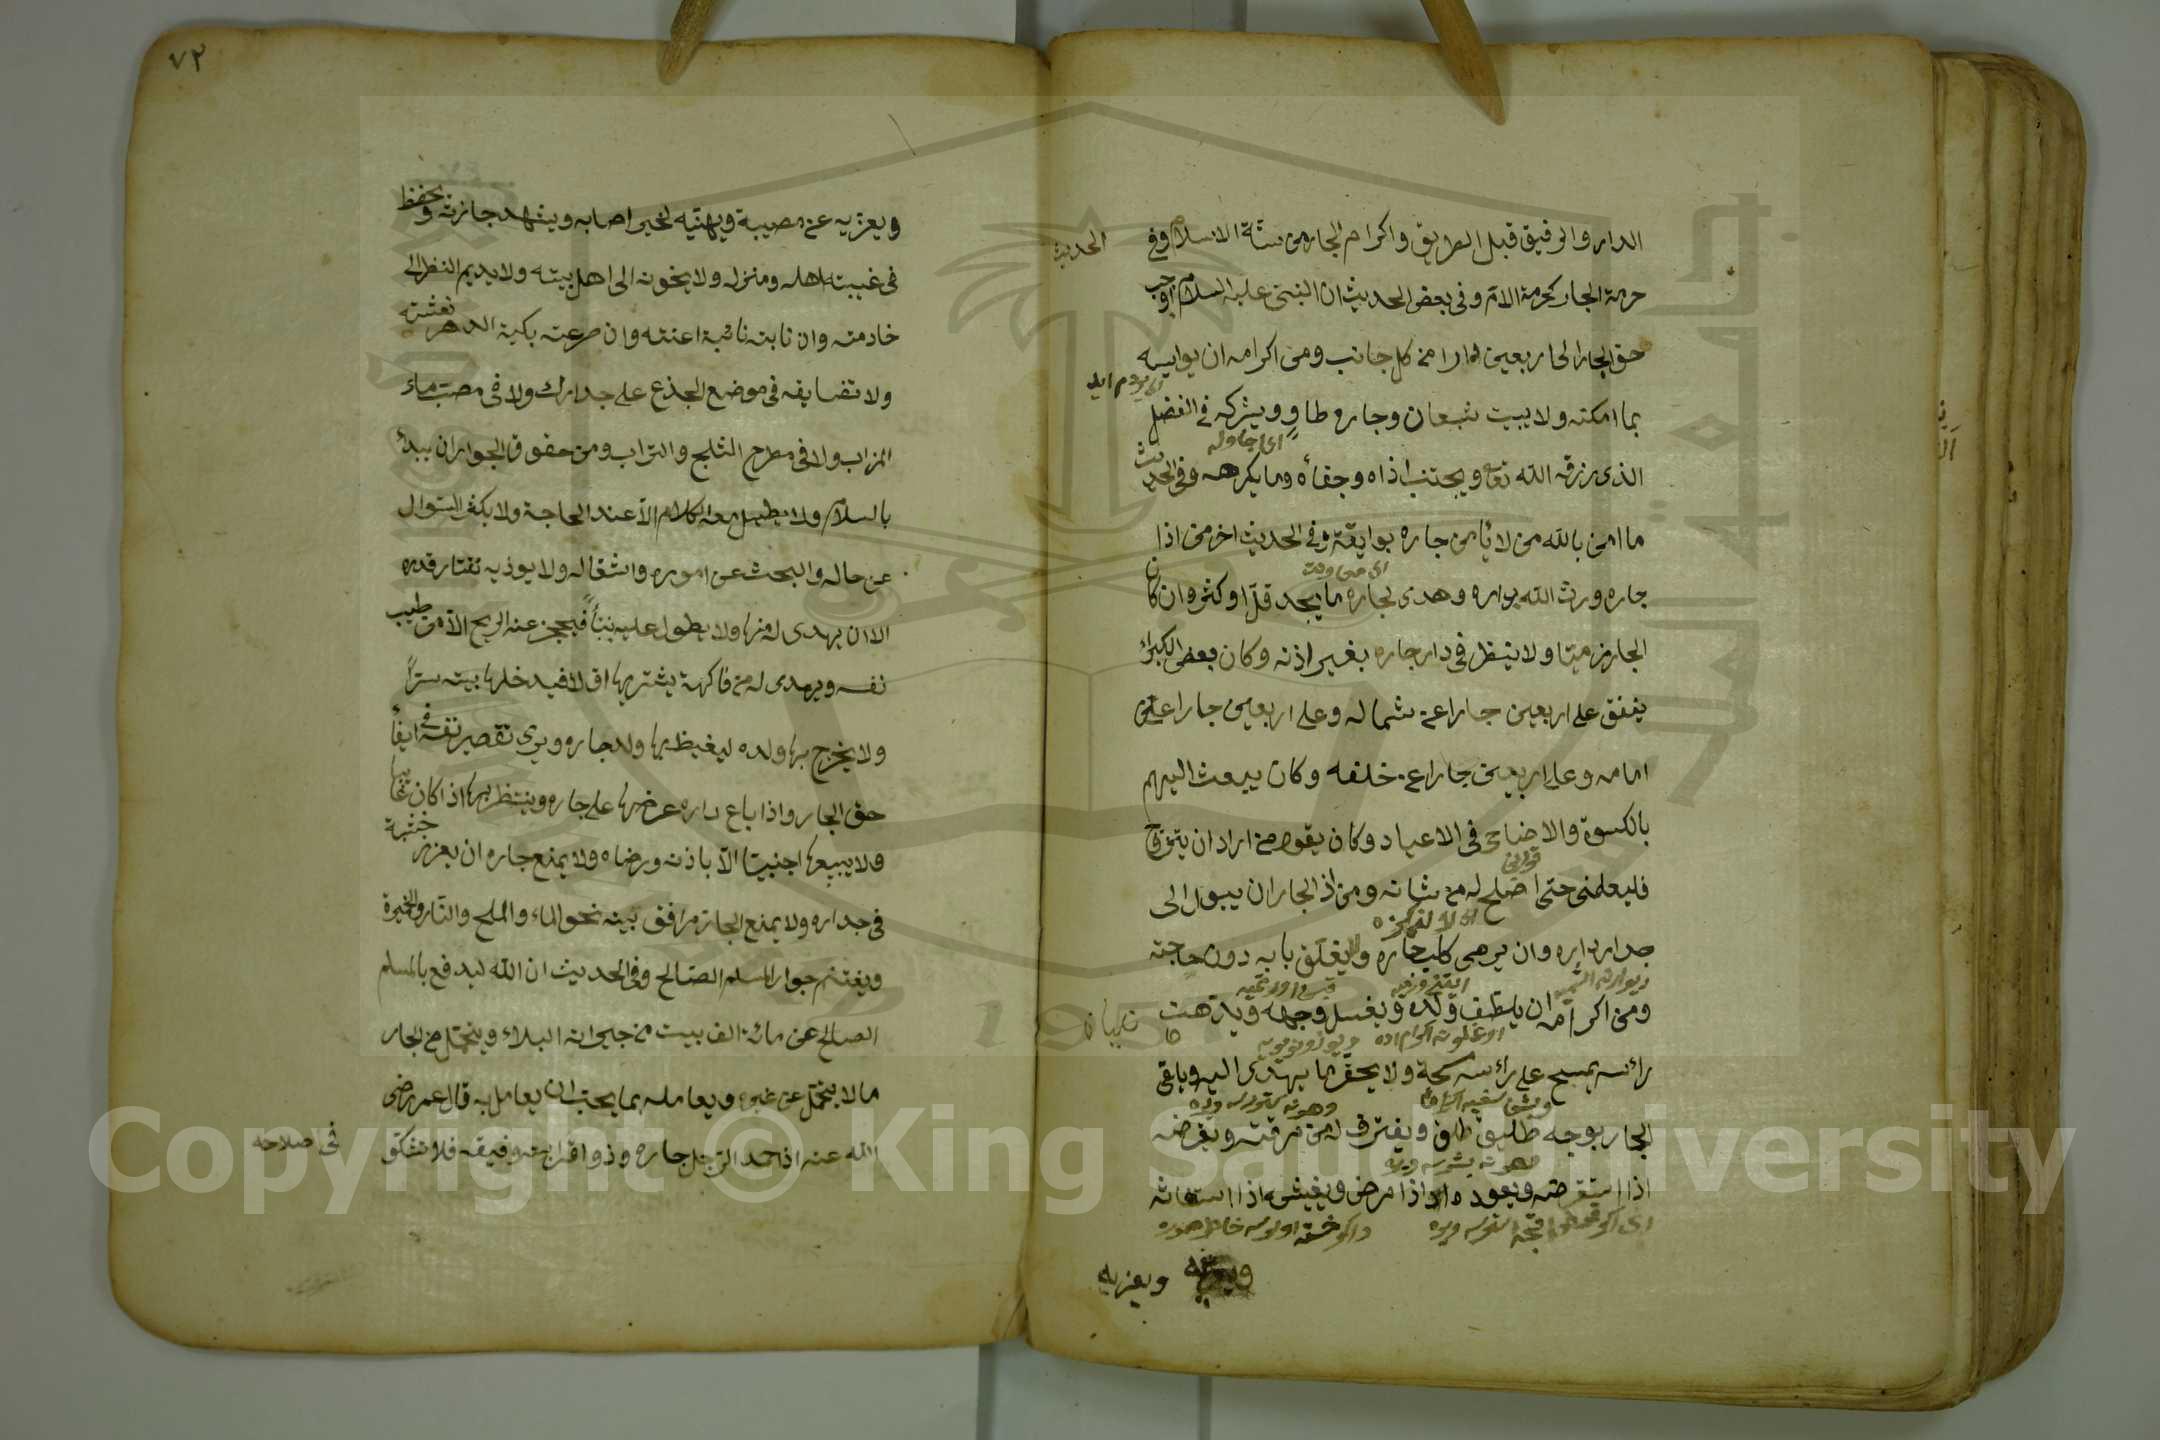 الدار والرفيق قبل الطريق واكرام الجار من سنة الاسلام وفي الحديث
حرمة الجار كحرمة الام وفي بعض الحديث ان النبي عليه السلام اوجب
حق الجار الى اربعين دارا من كل جانب ومن اكرامه ان يواسيه
بما امكنه ولا يبيت شبعان وجاره طاوٍ ويشركه في الفضل
الذى رزقه الله تعا ويجتنب اذاه وجفأه وما يكرهه وفي الحديث
ما امن بالله من لا يأمن جاره بوايقه وفي الحديث اخر من اذا
جاره ورث الله دياره وهدى لجاره ما يجد قلّ او كثر وان كان
الجار ميتا ولا ينظر في دار جاره بغير اذنه وكان بعض الكبراء
ينفق على اربعين جارا عن شماله وعلى اربعين جارا عن
امامه وعلى اربعين جارا عن خلفه وكان يبعث اليهم
بالكسوة والاضاحى في الاعياد وكان يقول من اراد ان يتزوج
فليعلمنى حتى اصلح له من شانه ومن اذ الجار ان يبول الى
جدار داره وان يرمى كلب جاره ولا يغلق بابه دون حاجته
ومن اكرامه ان يلطف ولده ويغسل وجهه ويدهن
رأسه يمسح على رأسه مسحة ولا يحقر ما يهدى اليه ويلقى
الجار بوجه طليق طلق ويغترف له من مرقته ويقرضه
اذا استقرضه ويعوده اذا مرض ويغيثه اذا استغاثه
ويعزيه
٧٢
ويعزيه عن مصيبة ويهنيه لخير اصابه ويشهد جنازته ويحفظ
في غيبته اهله ومنزله ولا يخونه الى اهل بيته ولا يديم النظر الى
خادمته وان نابته نائبة اعنته وان صرعته نكبة الدهر نعشته
ولا تضايقه في موضع الجذع على جدارك ولا في مصب ماء
المزاب ولا في مطرح الثلج والتراب ومن حقوق الجوار ان يبدأ
بالسلام ولا يطيل معه الكلام الا عند الحاجة ولا يكثر السؤال
عن حاله والبحث عن اموره واشغاله ولا يوذيه بقتار قدره
الا ان يهدى له منها ولا يطول عليه بناً فيحجز عنه الريح الا من طيب
نفسه ويهدى له من فاكهة يشتريها او لا فيدخلها بيته سترًا
ولا يخرج بها ولده ليغيظ بها ولد جاره ويرى تقصير نفسه في ايفاء
حق الجار واذا باع داره عرضها على جاره وينتظر بها اذا كان غائبا
ولا يبيعها اجنبيا الا باذنه ورضاه ولا يمنع جاره ان يغرز خشبة
في جداره ولا يمنع الجار مرافق بيته نحو الماء والملح والنار والخميرة
ويغتنم جوار المسلم الصالح وفي الحديث ان الله ليدفع بالمسلم
الصالح عن مائة الف بيت من جيرانه البلاء ويتحمل من الجار
ما لا يتحمل عن غيره ويعامله بما يحب ان يعامل به قال عمر رضى
الله عنه اذا حمد الرجل جاره وذو اقرابته ورفيقه فلا تشكو في صلاحه
Copyright © King Saud University
1957